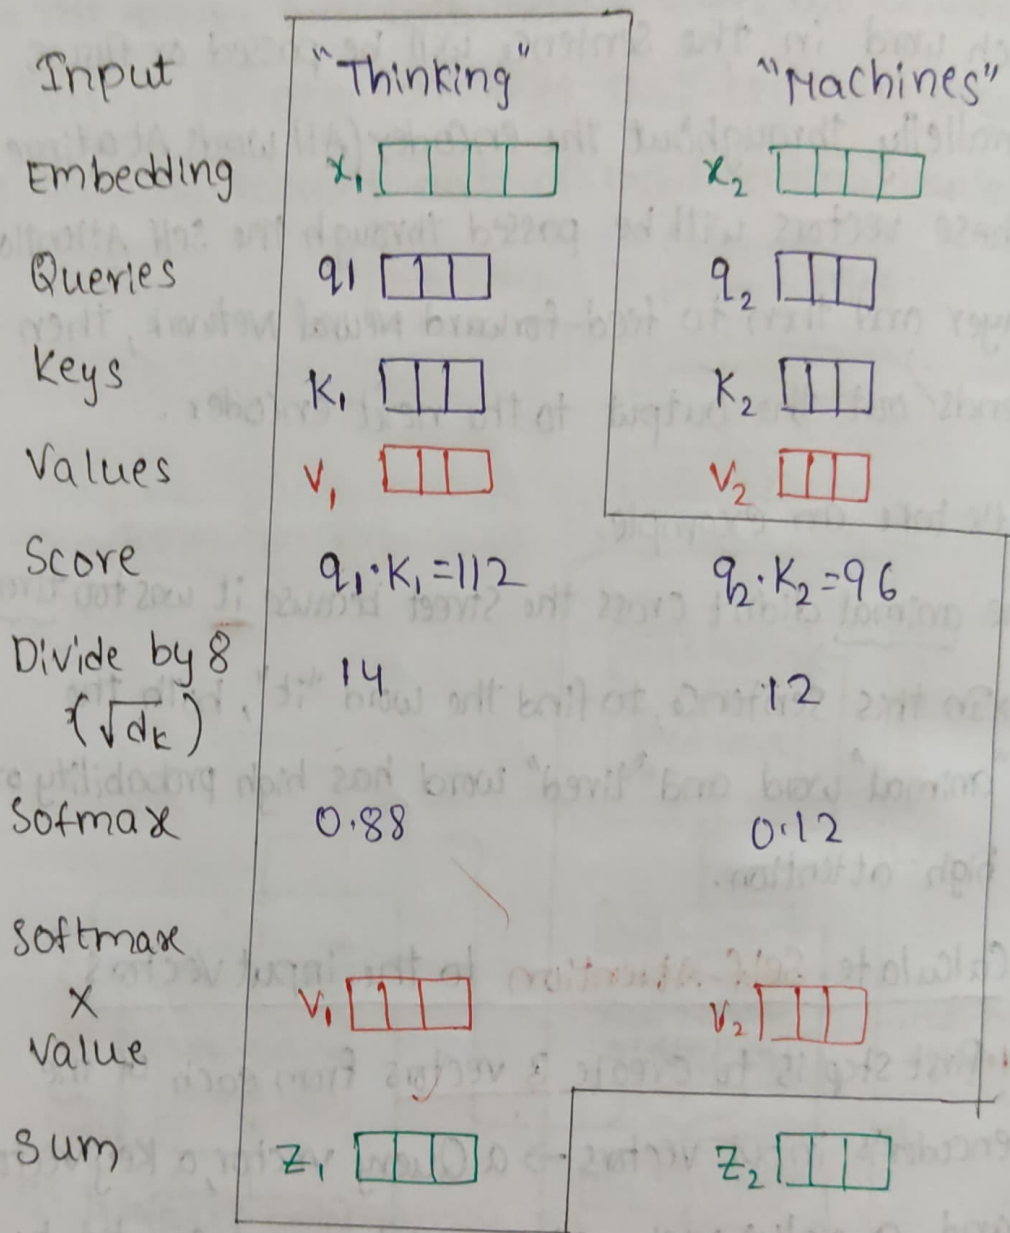 Input "Thinking" "Machines"
Embedding x₁ x₂
Queries q1 q₂
Keys K₁ K₂
Values V₁ V₂
Score q₁·K₁=112 q₂·K₂=96
Divide by 8 14 12
(√dₖ)
Sofmax 0.88 0.12
Softmax
X V₁ V₂
Value
Sum Z₁ Z₂